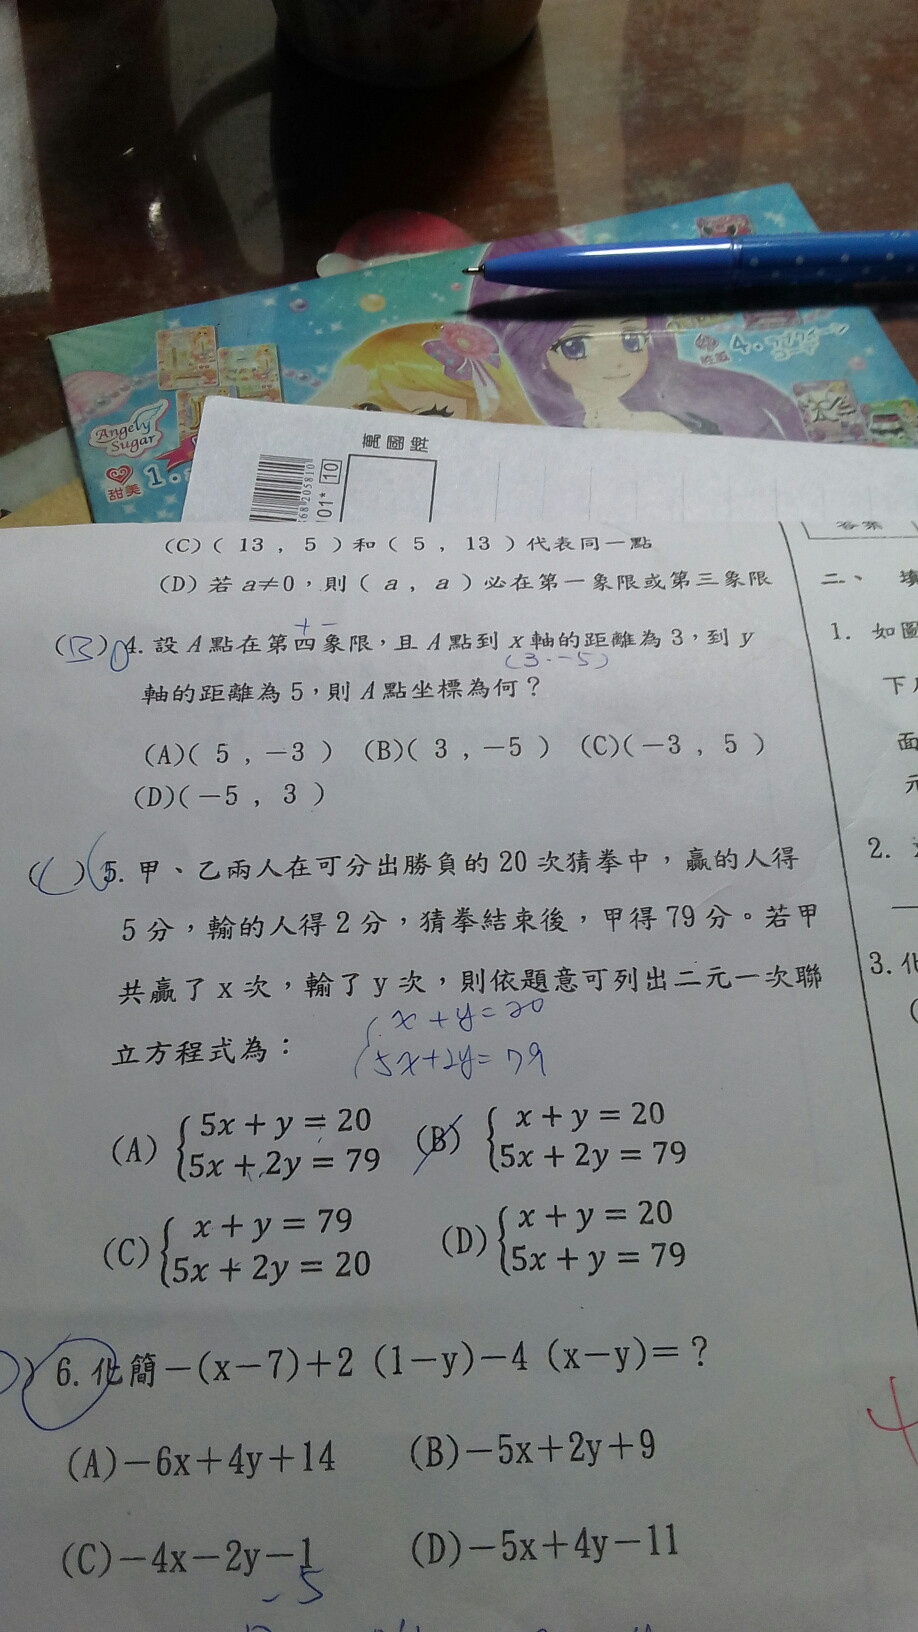 Angely
Sugar
甜美 1.
4.
10
(C) ( 13 , 5 ) 和 ( 5 , 13 ) 代表同一點
(D) 若 a≠0，則 ( a , a ) 必在第一象限或第三象限
+ -
(B) 4. 設 A 點在第四象限，且 A 點到 x 軸的距離為 3，到 y
(3.-5)
軸的距離為 5，則 A 點坐標為何？
(A)( 5 , －3 ) (B)( 3 , －5 ) (C)(－3 , 5 )
(D)(－5 , 3 )
( ) 5. 甲、乙兩人在可分出勝負的 20 次猜拳中，贏的人得
5 分，輸的人得 2 分，猜拳結束後，甲得 79 分。若甲
共贏了 x 次，輸了 y 次，則依題意可列出二元一次聯
立方程式為：
x + y = 20
5x+2y= 79
(A) { 5x + y = 20 (B) { x + y = 20
5x + 2y = 79 5x + 2y = 79
(C) { x + y = 79 (D) { x + y = 20
5x + 2y = 20 5x + y = 79
) 6. 化簡－(x－7)＋2 (1－y)－4 (x－y)＝？
(A)－6x＋4y＋14 (B)－5x＋2y＋9
(C)－4x－2y－1 (D)－5x＋4y－11
-5
答案
二、 填
1. 如圖
面
2.
3. 化